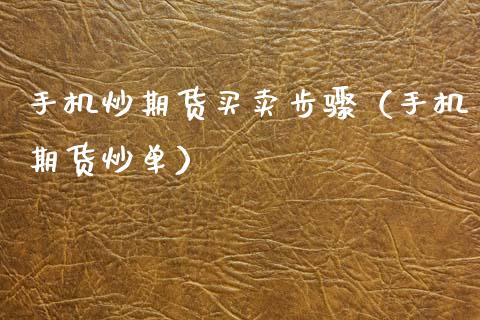 手机炒期货买卖步骤（手机
期货炒单）